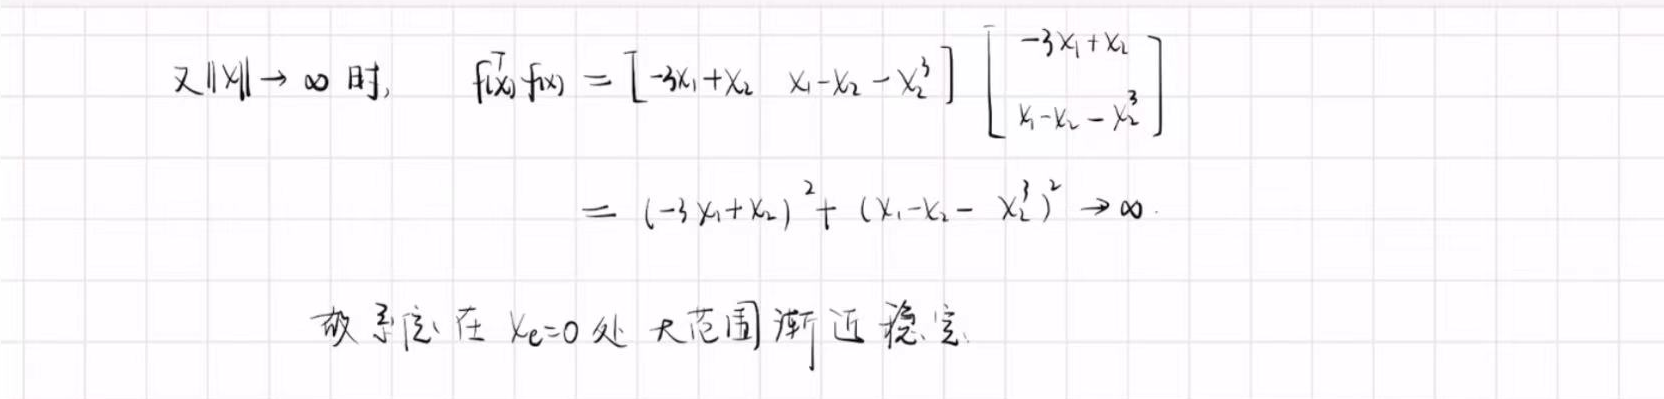 又‖x‖→∞ 时, fᵀ(x) f(x) = [-3x₁+x₂ x₁-x₂-x₂³] [-3x₁+x₂
x₁-x₂-x₂³]
= (-3x₁+x₂)² + (x₁-x₂-x₂³)² →∞.
故系统在 xₑ=0 处 大范围渐近稳定.